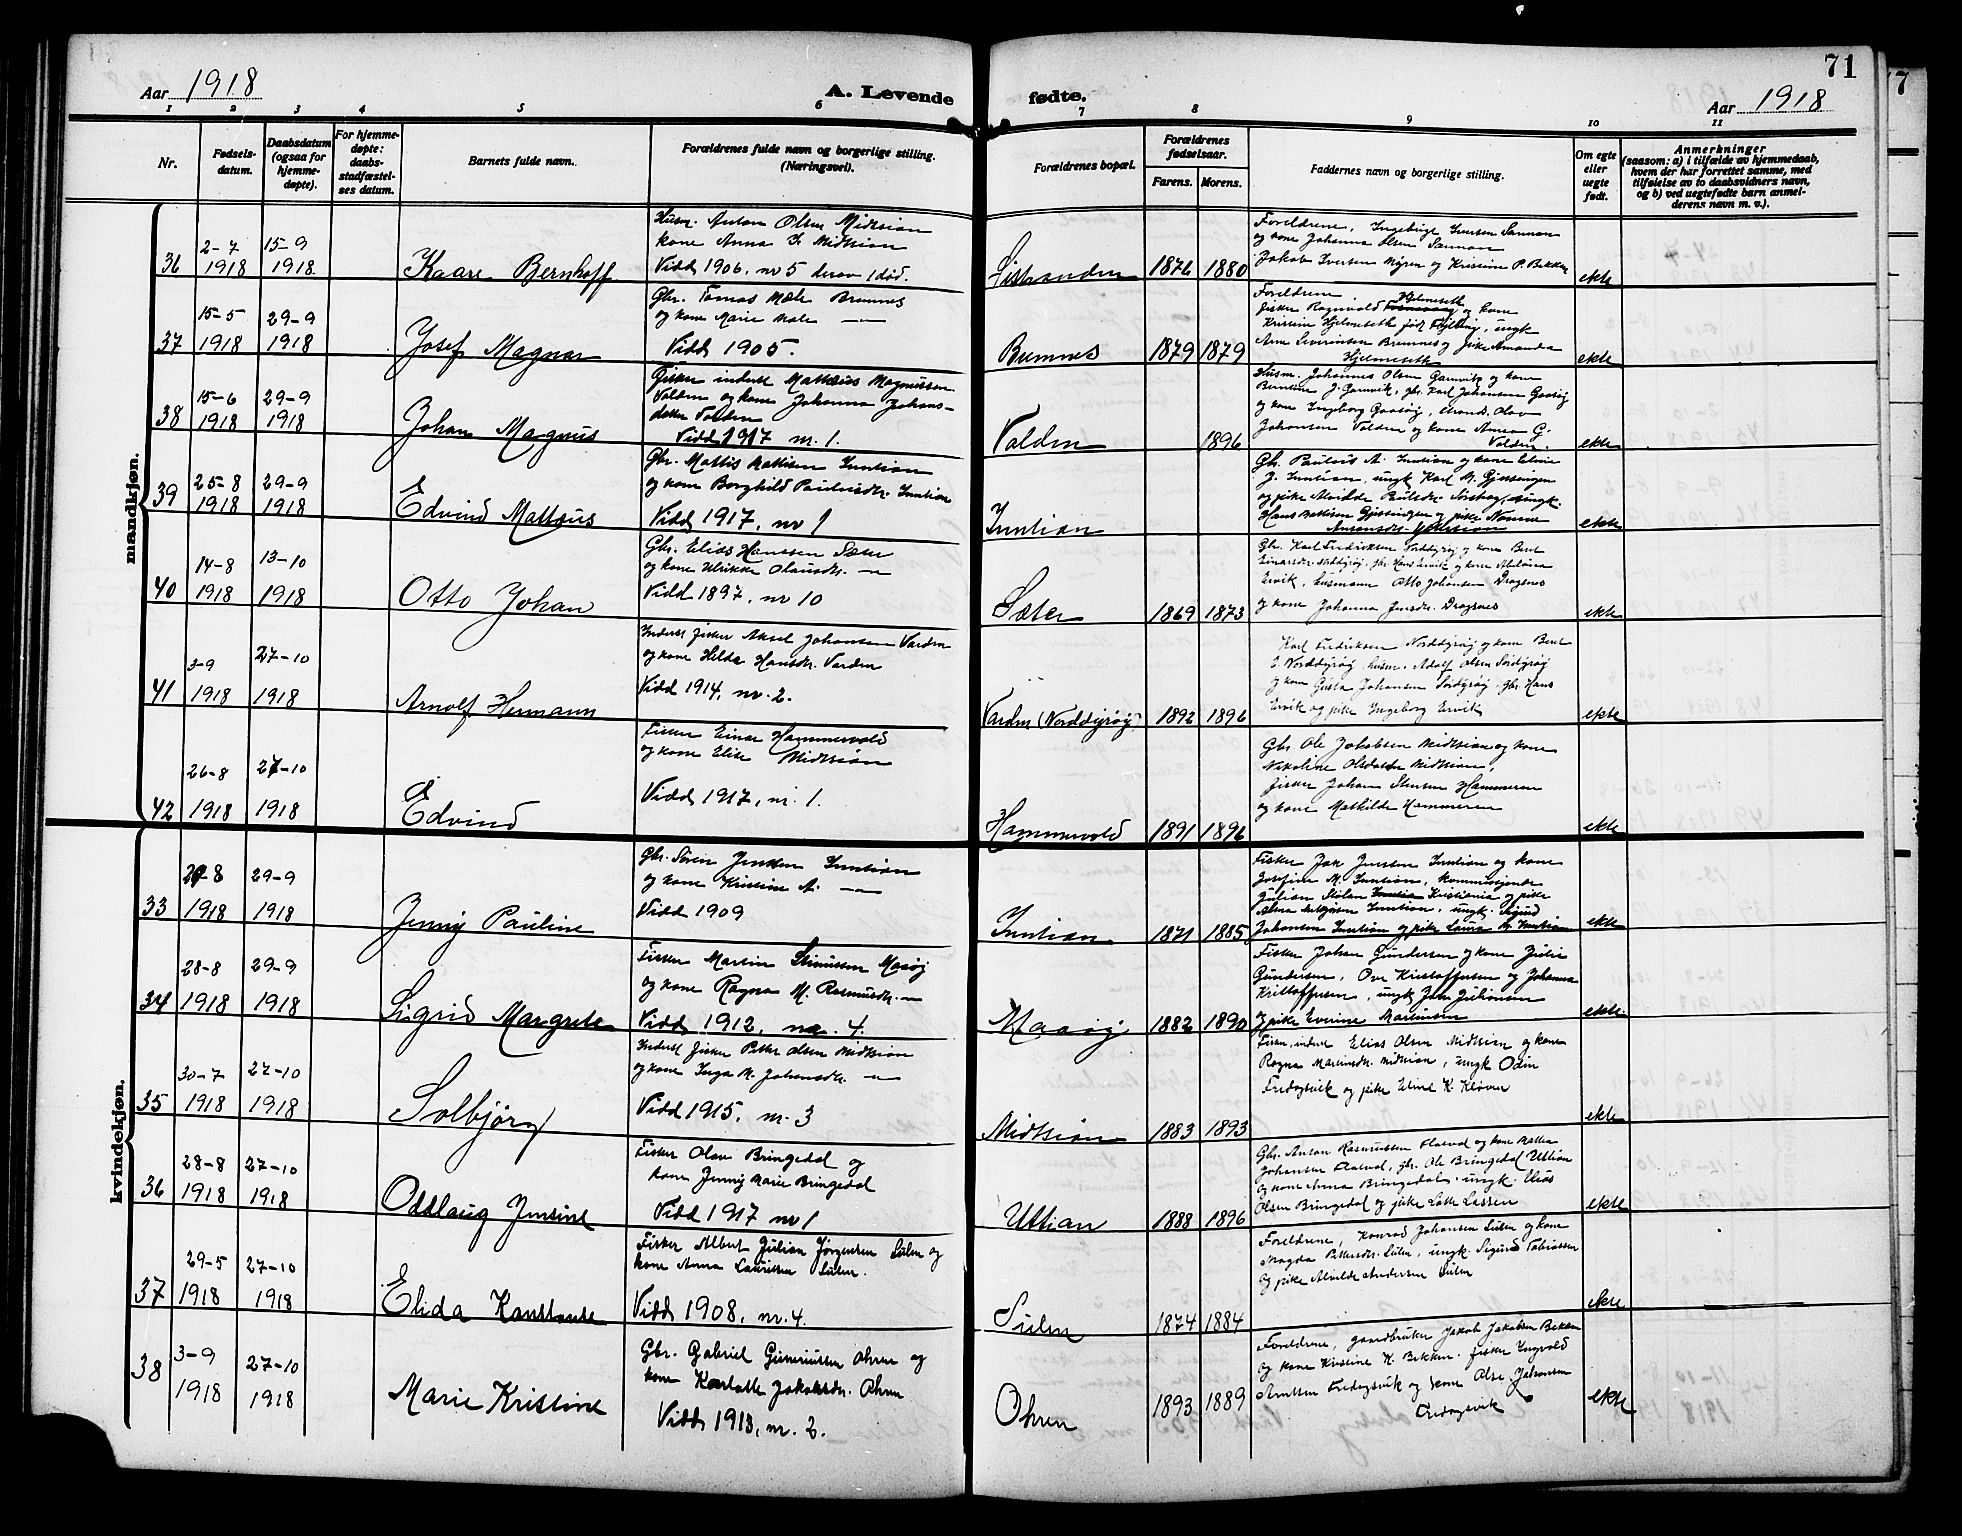 71
Aar 1918
A. Levende fødte.
Aar 1918
1 2 3 4 5 6 7 8 9 10 11
Nr.
Fødsels-
datum.
Daabsdatum
(ogsaa for
hjemme-
døpte).
For hjemme-
døpte:
daabs-
stadfæstel-
ses datum.
Barnets fulde navn.
Forældrenes fulde navn og borgerlige stilling.
(Næringsvei).
Forældrenes bopæl.
Forældrenes
fødselsaar.
Farens. Morens.
Faddernes navn og borgerlige stilling.
Om egte
eller
uegte
født.
Anmerkninger
(saasom: a) i tilfælde av hjemmedaab,
hvem der har forrettet samme, med
tilføielse av to daabsvidners navn,
og b) ved uegtefødte barn anmel-
derens navn m. v.).
mandkjøn.
36 2-7 1918 15-9 1918 Kaare Bernhoff
Husm. Anton Olsen Midtsian
kone Anna Midtsian
Vidd 1906, nr 5 derav 1 død.
1876 1880
Foreldrene, Iversen
og kone Johanna Olsen
Jakob Iversen og Kristine P. Bekken
ekte
37 15-5 1918 29-9 1918 Josef Magnar
Gbr. Tomas Mæle Bremnes
og kone Marie Mæle — „ —
Vidd 1905.
Bremnes 1879 1879
Foreldrene
fisker Ragnvald Hjelmeseth og kone
Kristine Hjelmeseth født ungk
Arne Severinsen Bremnes og pike Amanda
Hjelmeseth
ekte
38 15-6 1918 29-9 1918 Johan Magnus
Fisker inderst Mattæus Magnussen
Valden og kone Johanna Johans-
datter Valden
Vidd 1917 nr. 1.
Valden 1896
Husm. Johannes Olsen Gamvik og kone
Berntine J. Gamvik, gbr. Karl Johansen
og kone Ingeborg Olav
Johansen Valden og kone Anna G.
Valden.
ekte
39 25-8 1918 29-9 1918 Edvind Mattæus
Gbr. Mattis Mattisen Inntian
og kone Borghild Paulusdtr. Inntian
Vidd 1917, nr 1
Inntian
Gbr. Paulus A. Inntian og kone Eline
J. Inntian, ungk Karl M. Gjessingen
og pike Alvilde ungk.
Hans Mattisen Gjessingen og pike
ekte
40 14-8 1918 13-10 1918 Otto Johan
Gbr. Elias Hanssen Sæter
og kone Ulrikke Olausdtr. — „ —
Vidd 1897, nr 10
Sæter 1869 1873
Gbr. Karl Fredriksen Norddyrøy og kone Beret
Einarsdtr. Norddyrøy, gbr. Hans Ervik og kone
Ervik, husmann Otto Johansen Dragsnes
og kone Johanna Jensdtr. Dragsnes
ekte
41 3-9 1918 27-10 1918 Arnolf Hermann
Inderst fisker Aksel Johansen Varden
og kone Hilda Hansdtr. Varden
Vidd 1914, nr. 2.
Varden (Norddyrøy) 1892 1896
Karl Fredriksen Norddyrøy og kone Beret
E. Norddyrøy, husm. Adolf Olsen Sørdyrøy
og kone Gusta Johansen Sørdyrøy, gbr. Hans
Ervik og pike Ingeborg Ervik
ekte
42 26-8 1918 27-10 1918 Edvind
Fisker Einar Hammervold
og kone Elise Midtsian
Vidd 1917, nr. 1.
Hammervold 1891 1896
Gbr. Ole Jakobsen Midtsian og kone
Nikoline Olsdatter Midtsian,
fisker Johan Stensen Hammeren
og kone Mathilde Hammeren
ekte
kvindekjøn.
33 1918 29-9 1918 Jenny Pauline
Gbr. Søren Jenssen Inntian
og kone Kristine A. — „ —
Vidd 1909
Inntian 1871 1885
Fisker Jenssen Inntian og kone
Josefine M. Inntian,
Julian Kristiania og pike
Alma Inntian, ungk. Sigurd
Johansen Inntian og pike Laura Inntian
ekte
34 28-8 1918 29-9 1918 Sigrid Margrete
Fisker Martin Maaøy
og kone Ragna M. Rasmusdtr. — „ —
Vidd 1912, nr. 4.
Maaøy 1882 1890
Fisker Johan Gundersen og kone Julie
Gundersen, Ove Kristoffersen og Johanna
Kristoffersen, ungk Johansen
og pike Everine Martinsen
ekte.
35 30-7 1918 27-10 1918 Solbjørg
Inderst fisker Petter Olsen Midtsian
og kone Inga M. Johansdtr. — „ —
Vidd 1915, nr. 3
Midtsian 1883 1893
Fisker, inderst Elias Olsen Midtsian og kone
Ragna Martinsdtr. Midtsian, ungk Odin
Fredagsvik og pike Eline K. Kløven
ekte
36 28-8 1918 27-10 1918 Oddlaug Jensine
Fisker Olav Bringedal og
kone Jenny Marie Bringedal
Vidd 1917 nr 1
Uttian 1888 1896
Gbr. Anton Rasmussen Flatval og kone
Johansen Flatval, gbr. Ole Bringedal Uttian
og kone Anna Bringedal, ungk. Elias
Olsen Bringedal og pike Lotte Lassen
ekte
37 29-5 1918 27-10 1918 Elida Konstanse
Fisker Albert Julian Jørgensen Sulen og
kone Anna Lauritsen Sulen.
Vidd 1908, nr. 4.
Sulen 1874 1884
Foreldrene, Konrad Johansen Sulen og kone
Magda Pettersdtr. Sulen, ungk. Sigurd Tobiassen
og pike Alvilde Andersen Sulen
ekte
38 3-9 1918 27-10 1918 Marie Kristine
Gbr. Gabriel Guneriussen Ohren og
kone Karlotte Jakobsdtr. Ohren
Vidd 1913, nr. 2.
Ohren 1893 1889
Foreldrene, gaardbruker Jakob Jakobsen Bekken
og kone Kristine K. Bekken. fisker Ingvald
Arntsen Fredagsvik og kone Johansen
Fredagsvik
ekte